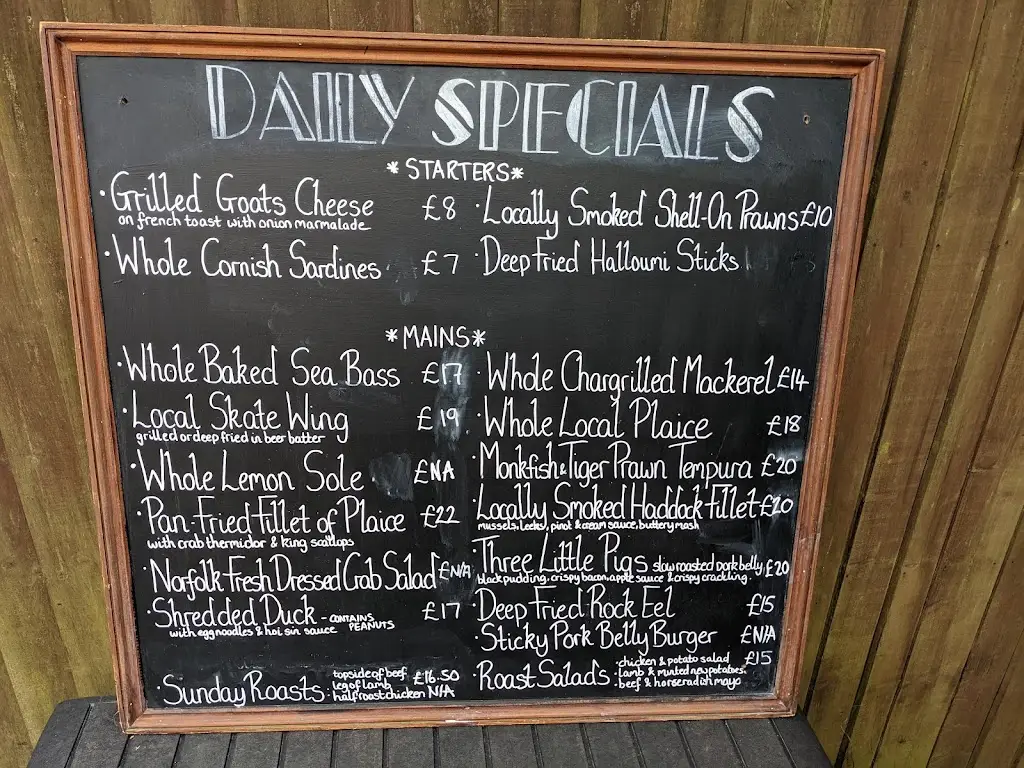 DAILY SPECIALS
*STARTERS*
·Grilled Goats Cheese £8
on french toast with onion marmalade
·Locally Smoked Shell-On Prawns £10
·Whole Cornish Sardines £7
·Deep Fried Halloumi Sticks
*MAINS*
·Whole Baked Sea Bass £17
·Whole Chargrilled Mackerel £14
·Local Skate Wing £19
grilled or deep fried in beer batter
·Whole Local Plaice £18
·Whole Lemon Sole £NA
·Monkfish & Tiger Prawn Tempura £20
·Pan-Fried Fillet of Plaice £22
with crab thermidor & king scallops
·Locally Smoked Haddock Fillet £20
mussels, leeks, pinot & cream sauce, buttery mash
·Norfolk Fresh Dressed Crab Salad £N/A
·Three Little Pigs slow roasted pork belly, £20
black pudding, crispy bacon, apple sauce & crispy crackling.
·Shredded Duck - CONTAINS PEANUTS £17
with egg noodles & hoi sin sauce
·Deep Fried Rock Eel £15
·Sticky Pork Belly Burger £N/A
·Sunday Roasts: topside of beef £16.50
leg of lamb
half roast chicken N/A
·Roast Salads: chicken & potato salad £15
lamb & minted new potatoes.
beef & horseradish mayo